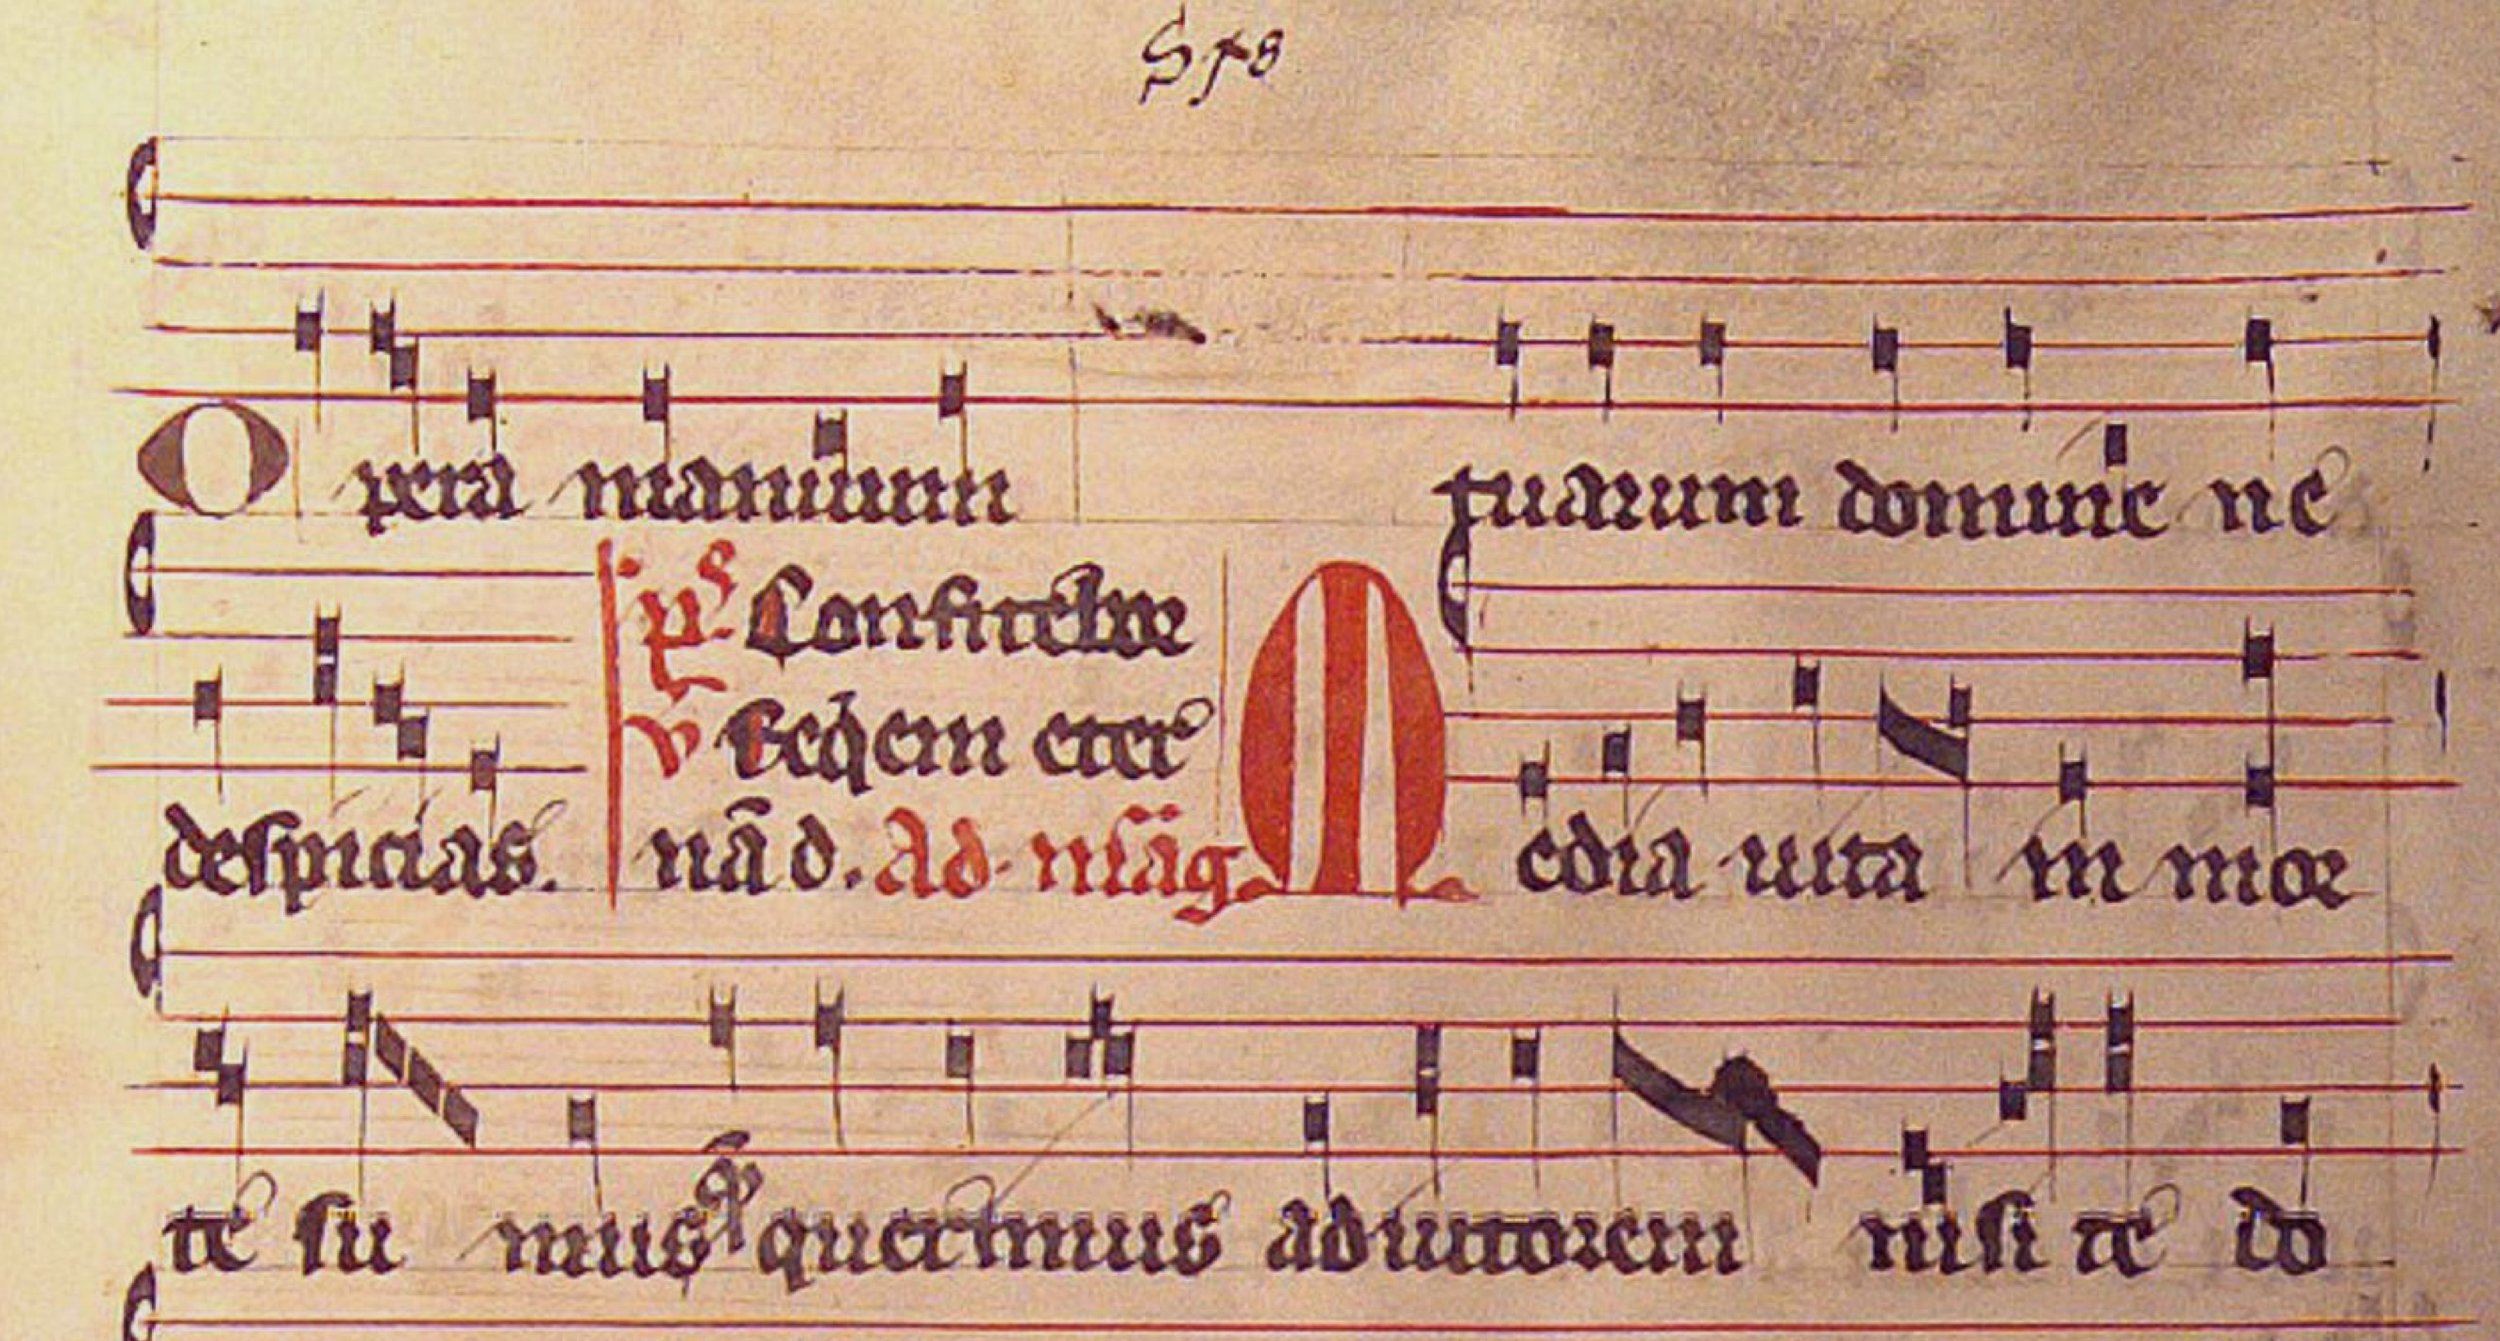 Opera manuum tuarum domine ne
despicias. ps Confitebor
v Reqem eter
nā d. Ad māg Media uita in mor
te su mus que querimus adiutorem nisi te do